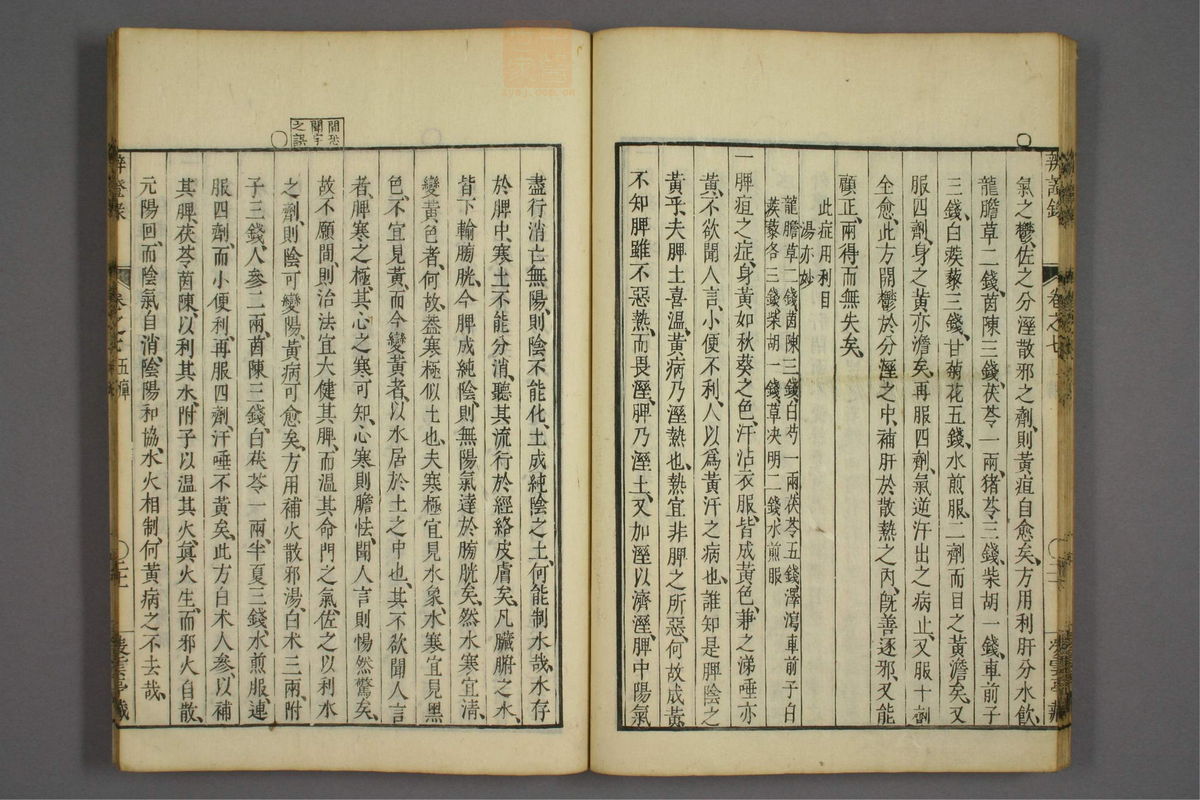 氣之鬱、佐之分溼散邪之劑、則黃疸自愈矣、方用利肝分水飲、
龍膽草二錢、茵陳三錢、茯苓一兩、猪苓三錢、柴胡一錢、車前子
三錢、白蒺藜三錢、甘菊花五錢、水煎服、二劑而目之黃澹矣、又
服四劑、身之黃亦澹矣、再服四劑、氣逆汗出之病止、又服十劑
全愈、此方開鬱於分溼之中、補肝於散熱之內、既善逐邪、又能
顧正、兩得而無失矣、
此症用利目
湯亦妙
龍膽草二錢茵陳三錢白芍一兩茯苓五錢澤瀉車前子白
蒺藜各三錢柴胡一錢草决明二錢水煎服
一脾疸之症、身黃如秋葵之色、汗沾衣服、皆成黃色、兼之涕唾亦
黃、不欲聞人言、小便不利、人以爲黃汗之病也、誰知是脾陰之
黃乎、夫脾土喜溫、黃病乃溼熱也、熱宜非脾之所惡、何故成黃
不知脾雖不惡熱、而畏溼、脾乃溼土、又加溼以濟溼、脾中陽氣
盡行消亡、無陽、則陰不能化、土成純陰之土、何能制水哉、水存
於脾中、寒土不能分消、聽其流行於經絡皮膚矣、凡臟腑之水、
皆下輸膀胱、今脾成純陰、則無陽氣達於膀胱矣、然水寒宜清、
變黃色者、何故、蓋寒極似土也、夫寒極宜見水象、水寒宜見黑
色、不宜見黃、而今變黃者、以水居於土之中也、其不欲聞人言
者、脾寒之極、其心之寒可知、心寒則膽怯、聞人言則惕然驚矣、
故不願間、則治法宜大健其脾、而溫其命門之氣、佐之以利水
之劑、則陰可變陽、黃病可愈矣、方用補火散邪湯、白朮三兩、附
子三錢、人參二兩、茵陳三錢、白茯苓一兩、半夏三錢、水煎服、連
服四劑、而小便利、再服四劑、汗唾不黃矣、此方白朮人參、以補
其脾、茯苓茵陳、以利其水、附子以溫其火、眞火生、而邪火自散、
元陽回、而陰氣自消、陰陽和協、水火相制、何黃病之不去哉、
間恐
聞字
之誤
卷之七
五疸